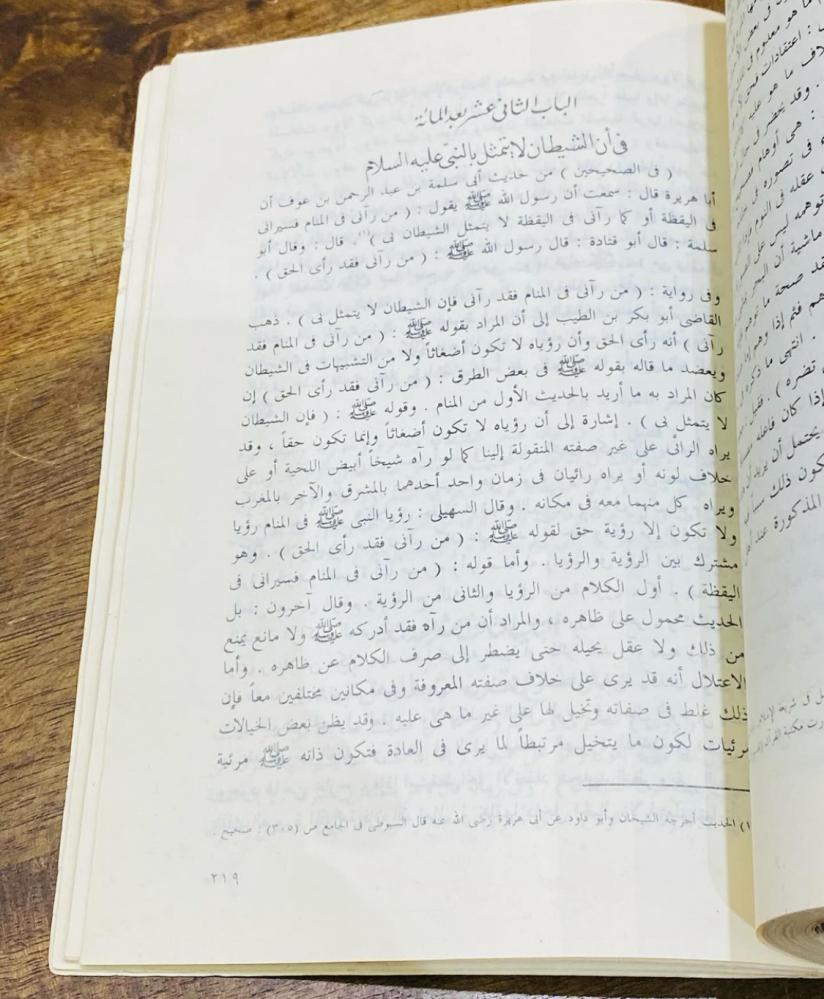 الباب الثانى عشر بعد المائة
فى أن الشيطان لا يتمثل بالنبى عليه السلام
( فى الصحيحين ) من حديث أبى سلمة بن عبد الرحمن بن عوف أن
أبا هريرة قال : سمعت أن رسول الله ﷺ يقول : ( من رآنى فى المنام فسيرانى
فى اليقظة أو كما رآنى فى اليقظة لا يتمثل الشيطان بى )(١) . قال : وقال أبو
سلمة : قال أبو قتادة : قال رسول الله ﷺ : ( من رآنى فقد رأى الحق ) .
وفى رواية : ( من رآنى فى المنام فقد رآنى فإن الشيطان لا يتمثل بى ) . ذهب
القاضى أبو بكر بن الطيب إلى أن المراد بقوله ﷺ : ( من رآنى فى المنام فقد
رآنى ) أنه رأى الحق وأن رؤياه لا تكون أضغاثاً ولا من التشبيهات فى الشيطان
ويعضد ما قاله بقوله ﷺ فى بعض الطرق : ( من رآنى فقد رأى الحق ) إن
كان المراد به ما أريد بالحديث الأول من المنام . وقوله ﷺ : ( فإن الشيطان
لا يتمثل بى ) . إشارة إلى أن رؤياه لا تكون أضغاثاً وإنما تكون حقاً ، وقد
يراه الرائى على غير صفته المنقولة إلينا كما لو رآه شيخاً أبيض اللحية أو على
خلاف لونه أو يراه رائيان فى زمان واحد أحدهما بالمشرق والآخر بالمغرب
ويراه كل منهما معه فى مكانه . وقال السهيلى : رؤيا النبى ﷺ فى المنام رؤيا
ولا تكون إلا رؤية حق لقوله ﷺ : ( من رآنى فقد رأى الحق ) . وهو
مشترك بين الرؤية والرؤيا . وأما قوله : ( من رآنى فى المنام فسيرانى فى
اليقظة ) . أول الكلام من الرؤيا والثانى من الرؤية . وقال آخرون : بل
الحديث محمول على ظاهره ، والمراد أن من رآه فقد أدركه ﷺ ولا مانع يمنع
من ذلك ولا عقل يحيله حتى يضطر إلى صرف الكلام عن ظاهره . وأما
الاعتلال أنه قد يرى على خلاف صفته المعروفة وفى مكانين مختلفين معاً فإن
ذلك غلط فى صفاته وتخيل لها على غير ما هى عليه . وقد يظن بعض الخيالات
مرئيات لكون ما يتخيل مرتبطاً لما يرى فى العادة فتكون ذاته ﷺ مرئية
١) الحديث أخرجه الشيخان وأبو داود عن أبى هريرة رضى الله عنه قال السيوطى فى الجامع ص (٣٠٥) : صحيح .
٢١٩